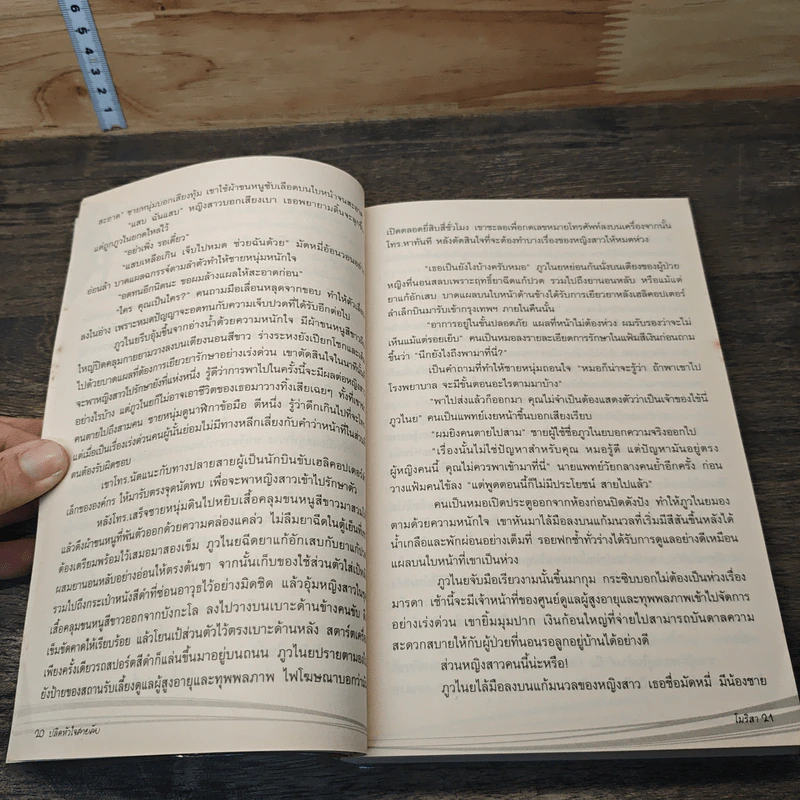 6 5 4 3 2 1
สะอาด” ชายหนุ่มบอกเสียงทุ้ม เขาใช้ผ้าขนหนูซับเลือดบนใบหน้าจนสะอาด
“แสบ ฉันแสบ” หญิงสาวบอกเสียงเบา เธอพยายามดิ้นจะลุกขึ้น
แต่ถูกภูวไนยกดไหล่ไว้
“อย่าเพิ่ง รอเดี๋ยว”
“แสบเหลือเกิน เจ็บไปหมด ช่วยฉันด้วย” มัดหมี่อ้อนวอนอย่าง
อ่อนล้า บาดแผลฉกรรจ์ตามลำตัวทำให้ชายหนุ่มหนักใจ
“อดทนอีกนิดนะ ขอผมล้างแผลให้สะอาดก่อน”
“ใคร คุณเป็นใคร?” คนถามมือเลื่อนหลุดจากขอบ ทำให้ตัวเอียง
ลงในอ่าง เพราะหมดปัญญาจะอดทนกับความเจ็บปวดที่ได้รับอีกต่อไป
ภูวไนยรีบอุ้มขึ้นจากอ่างน้ำด้วยความหนักใจ มีผ้าขนหนูสีขาว
ใหญ่ปิดคลุมกายยามวางลงบนเตียงนอนสีขาว ร่างระหงยังเปียกโชกและ
ไปด้วยบาดแผลที่ต้องการเยียวยารักษาอย่างเร่งด่วน เขาตัดสินใจในนาที
จะพาหญิงสาวไปรักษายังที่แห่งหนึ่ง รู้ว่าการพาไปในครั้งนี้จะมีผลต่อ
อย่างไรบ้าง แต่ภูวไนยก็ไม่อาจเอาชีวิตของเธอมาวางทิ้งเสียเฉยๆ ทั้งที่
คนตายไปถึงสามคน ชายหนุ่มดูนาฬิกาข้อมือ ตีหนึ่ง รู้ว่าดึกเกินไปที่จะ
แต่เมื่อเป็นเรื่องเร่งด่วนคนผู้นั้นย่อมไม่มีทางหลีกเลี่ยงกับคำว่าหน้าที่
ตนต้องรับผิดชอบ
เขาโทร.นัดแนะกับทางปลายสายผู้เป็นนักบินขับเฮลิคอปเตอร์
เล็กขององค์กร ให้มารับตรงจุดนัดพบ เพื่อจะพาหญิงสาวเข้าไปรักษาตัว
หลังโทร.เสร็จชายหนุ่มเดินไปหยิบเสื้อคลุมขนหนูสีขาวมาสวม
แล้วดึงผ้าขนหนูที่พันตัวออกด้วยความคล่องแคล่ว ไม่ลืมยาฉีดในตู้เย็นที่
ต้องเตรียมพร้อมไว้เสมอมาสองเข็ม ภูวไนยฉีดยาแก้อักเสบกับยาแก้ปวด
ผสมยานอนหลับอย่างอ่อนให้ตรงต้นขา จากนั้นเก็บของใช้ส่วนตัวใส่เป้
รวมไปถึงกระเป๋าหนังสีดำที่ซ่อนอาวุธไว้อย่างมิดชิด แล้วอุ้มหญิงสาวใน
เสื้อคลุมขนหนูสีขาวออกจากบังกะโล ลงไปวางบนเบาะด้านข้างคนขับ
เข็มขัดคาดให้เรียบร้อย แล้วโยนเป้ส่วนตัวไว้ตรงเบาะด้านหลัง สตาร์ตเครื่อง
เพียงครั้งเดียวรถสปอร์ตสีดำก็แล่นขึ้นมาอยู่บนถนน ภูวไนยปรายตามอง
ยังป้ายของสถานรับเลี้ยงดูแลผู้สูงอายุและทุพพลภาพ ไฟโฆษณาบอกว่า
20 ปลิดหัวใจสายลับ
เปิดตลอดยี่สิบสี่ชั่วโมง เขาชะลอเพื่อกดเลขหมายโทรศัพท์ลงบนเครื่องจากนั้น
โทร.หาทันที หลังตัดสินใจที่จะต้องทำบางเรื่องของหญิงสาวให้หมดห่วง
“เธอเป็นยังไงบ้างครับหมอ” ภูวไนยหย่อนก้นนั่งบนเตียงของผู้ป่วย
หญิงที่นอนสลบเพราะฤทธิ์ยาฉีดแก้ปวด รวมไปถึงยานอนหลับ หรือแม้แต่
ยาแก้อักเสบ บาดแผลบนใบหน้าด้านข้างได้รับการเยียวยาหลังเฮลิคอปเตอร์
ลำเล็กบินมารับเข้ากรุงเทพฯ ภายในคืนนั้น
“อาการอยู่ในขั้นปลอดภัย แผลที่หน้าไม่ต้องห่วง ผมรับรองว่าจะไม่
เห็นแม้แต่รอยเย็บ” คนเป็นหมอลงรายละเอียดการรักษาในแฟ้มสีเงินก่อนถาม
ขึ้นว่า “นึกยังไงถึงพามาที่นี่?”
เป็นคำถามที่ทำให้ชายหนุ่มถอนใจ “หมอก็น่าจะรู้ว่า ถ้าพาเขาไป
โรงพยาบาล จะมีขั้นตอนอะไรตามมาบ้าง”
“พาไปส่งแล้วก็ออกมา คุณไม่จำเป็นต้องแสดงตัวว่าเป็นเจ้าของไข้นี่
ภูวไนย” คนเป็นแพทย์เงยหน้าขึ้นบอกเสียงเรียบ
“ผมยิงคนตายไปสาม” ชายผู้ใช้ชื่อภูวไนยบอกความจริงออกไป
“เรื่องนั้นไม่ใช่ปัญหาสำหรับคุณ หมอรู้ดี แต่ปัญหามันอยู่ตรง
ผู้หญิงคนนี้ คุณไม่ควรพาเข้ามาที่นี่” นายแพทย์วัยกลางคนย้ำอีกครั้ง ก่อน
วางแฟ้มคนไข้ลง “แต่พูดตอนนี้ก็ไม่มีประโยชน์ สายไปแล้ว”
คนเป็นหมอเปิดประตูออกจากห้องก่อนปิดดังปัง ทำให้ภูวไนยมอง
ตามด้วยความหนักใจ เขาหันมาไล้มือลงบนแก้มนวลที่เริ่มมีสีสันขึ้นหลังได้
น้ำเกลือและพักผ่อนอย่างเต็มที่ รอยฟกช้ำทั่วร่างได้รับการดูแลอย่างดีเหมือน
แผลบนใบหน้าที่เขาเป็นห่วง
ภูวไนยจับมือเรียวงามนั้นขึ้นมากุม กระซิบบอกไม่ต้องเป็นห่วงเรื่อง
มารดา เช้านี้จะมีเจ้าหน้าที่ของศูนย์ดูแลผู้สูงอายุและทุพพลภาพเข้าไปจัดการ
อย่างเร่งด่วน เขายิ้มมุมปาก เงินก้อนใหญ่ที่จ่ายไปสามารถบันดาลความ
สะดวกสบายให้กับผู้ป่วยที่นอนรอลูกอยู่บ้านได้อย่างดี
ส่วนหญิงสาวคนนี้น่ะหรือ!
ภูวไนยไล้มือลงบนแก้มนวลของหญิงสาว เธอชื่อมัดหมี่ มีน้องชาย
โมริสา 21